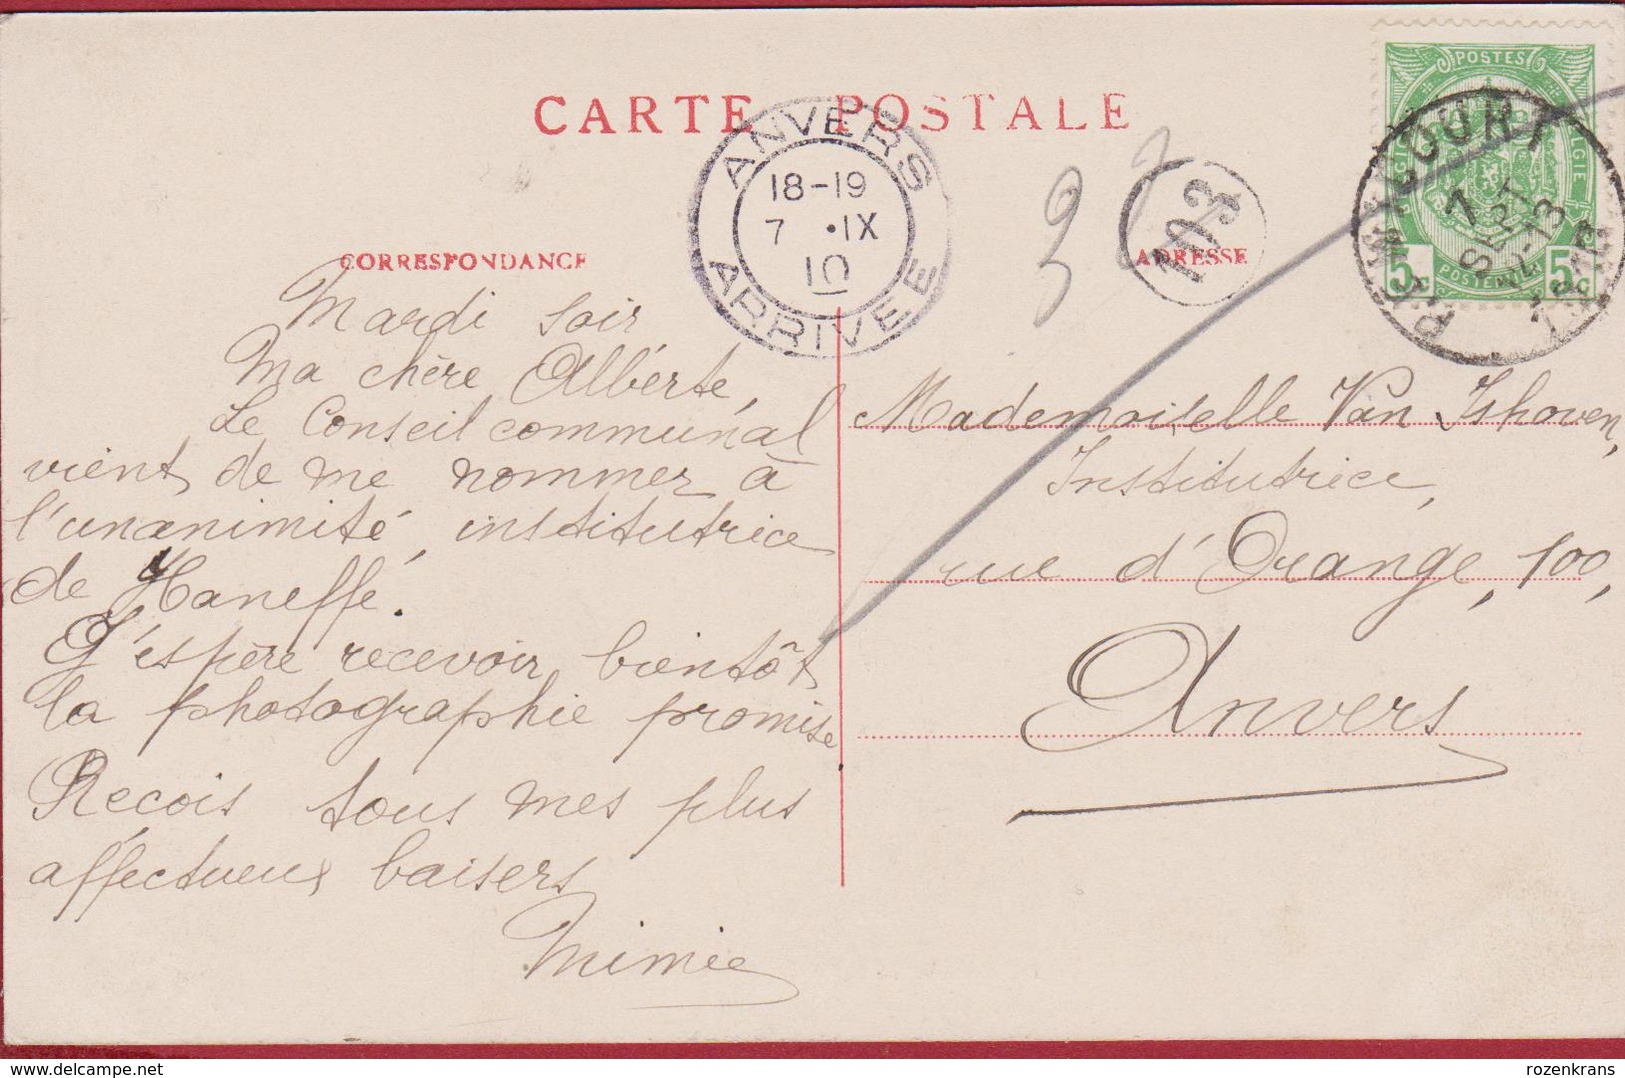 CARTE POSTALE
ANVERS
18-19
7 • IX
10
ARRIVEE
103
POSTES
5
5
CORRESPONDANCE
ADRESSE
Mardi soir
Ma chère Alberte,
Le Conseil communal
vient de me nommer à
l'unanimité, institutrice
de Haneffe.
J'espère recevoir bientôt
la photographie promise
Recois tous mes plus
affectueux baisers
Mimie
Mademoiselle Van Ishoven,
Institutrice,
rue d'Orange, 100,
Anvers
www.delcampe.net
rozenkrans